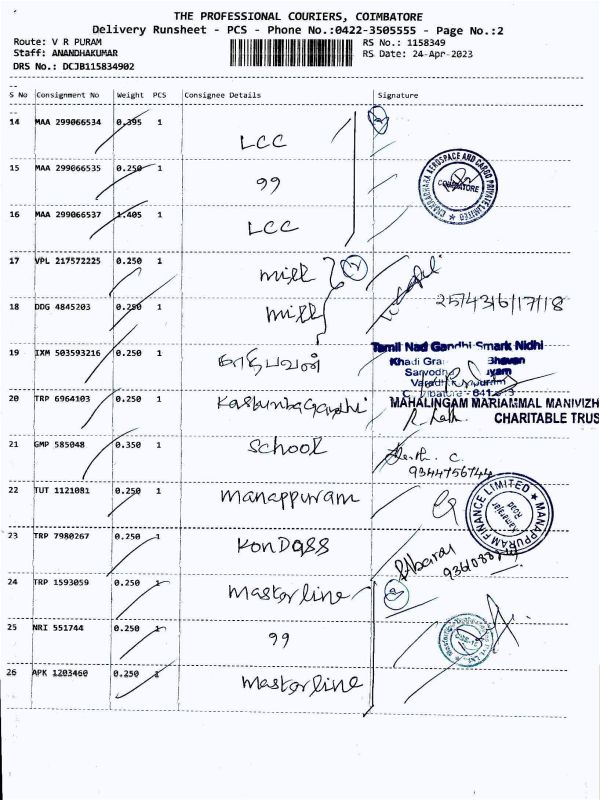 THE PROFESSIONAL COURIERS, COIMBATORE
Delivery Runsheet - PCS - Phone No.:0422-3505555 - Page No.:2
Route: V R PURAM
RS No.: 1158349
Staff: ANANDHAKUMAR
RS Date: 24-Apr-2023
DRS No.: DCJB115834902
S No Consignment No Weight PCS Consignee Details Signature
14 MAA 299066534 0.395 1 LCC
15 MAA 299066535 0.250 1 99
16 MAA 299066537 1.405 1 LCC
CHAKRADHARA AEROSPACE AND CARGO PRIVATE LIMITED
COIMBATORE
17 VPL 217572225 0.250 1 milk
18 DDG 4845203 0.250 1 milk
257436/17/18
19 IXM 503593216 0.250 1
Tamil Nad Gandhi Smark Nidhi
Khadi Bhavan
20 TRP 6964103 0.250 1 Kasturiba Gandhi
MAHALINGAM MARIAMMAL MANIVIZH
CHARITABLE TRUS
21 GMP 585048 0.350 1 School
9344756744
22 TUT 1121081 0.250 1 Manappuram
MANAPPURAM FINANCE LIMITED
Kamarajar
Road
23 TRP 7980267 0.250 1 KonDass
24 TRP 1593059 0.250 1 Masterline
25 NRI 551744 0.250 1 99
26 APK 1203460 0.250 1 Masterline